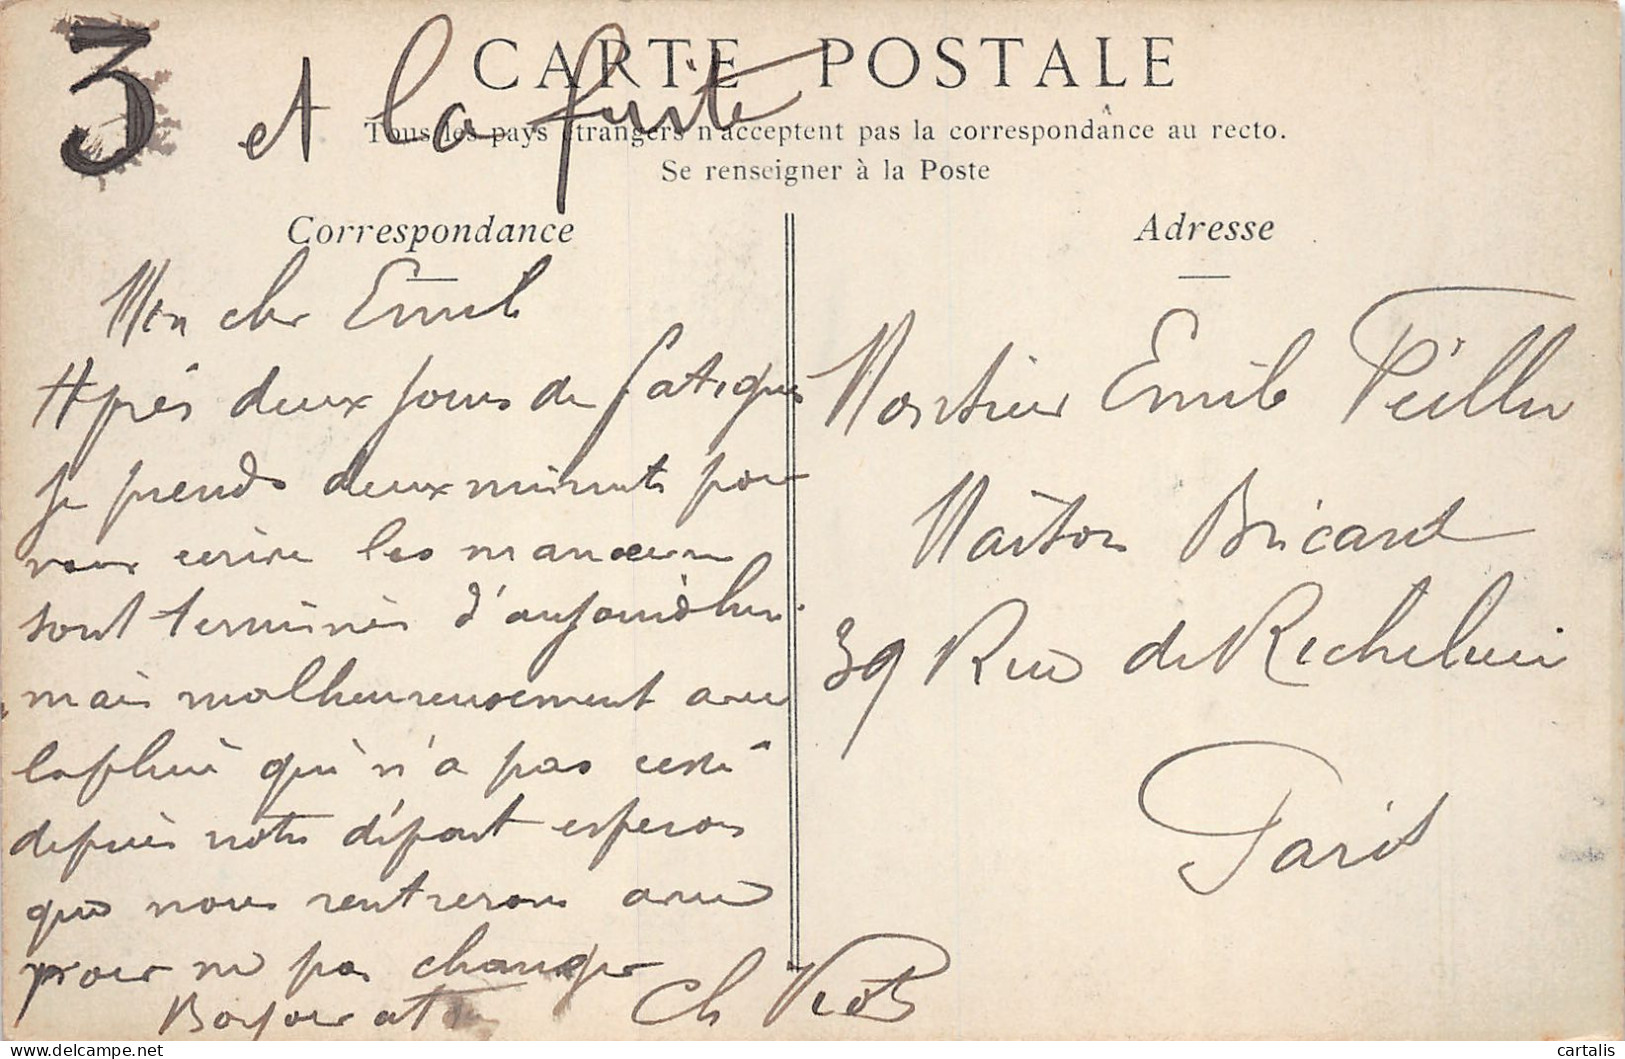 3
et la suite
CARTE POSTALE
Tous les pays étrangers n'acceptent pas la correspondance au recto.
Se renseigner à la Poste
Correspondance
Mon cher Emile
Après deux jours de fatigues
je prends deux minuts pour
vous ecrire les manœuvres
sont terminés d'aujourd'hui
mais malheureusement avec
la pluie qui n'a pas cessé
depuis notre départ esperons
que nous rentrerons avec
pour ne pas changer
Bonjour a
Ch
Adresse
Monsieur Emile
Maison Bricard
39 Rue de Richelieu
Paris
cartalis